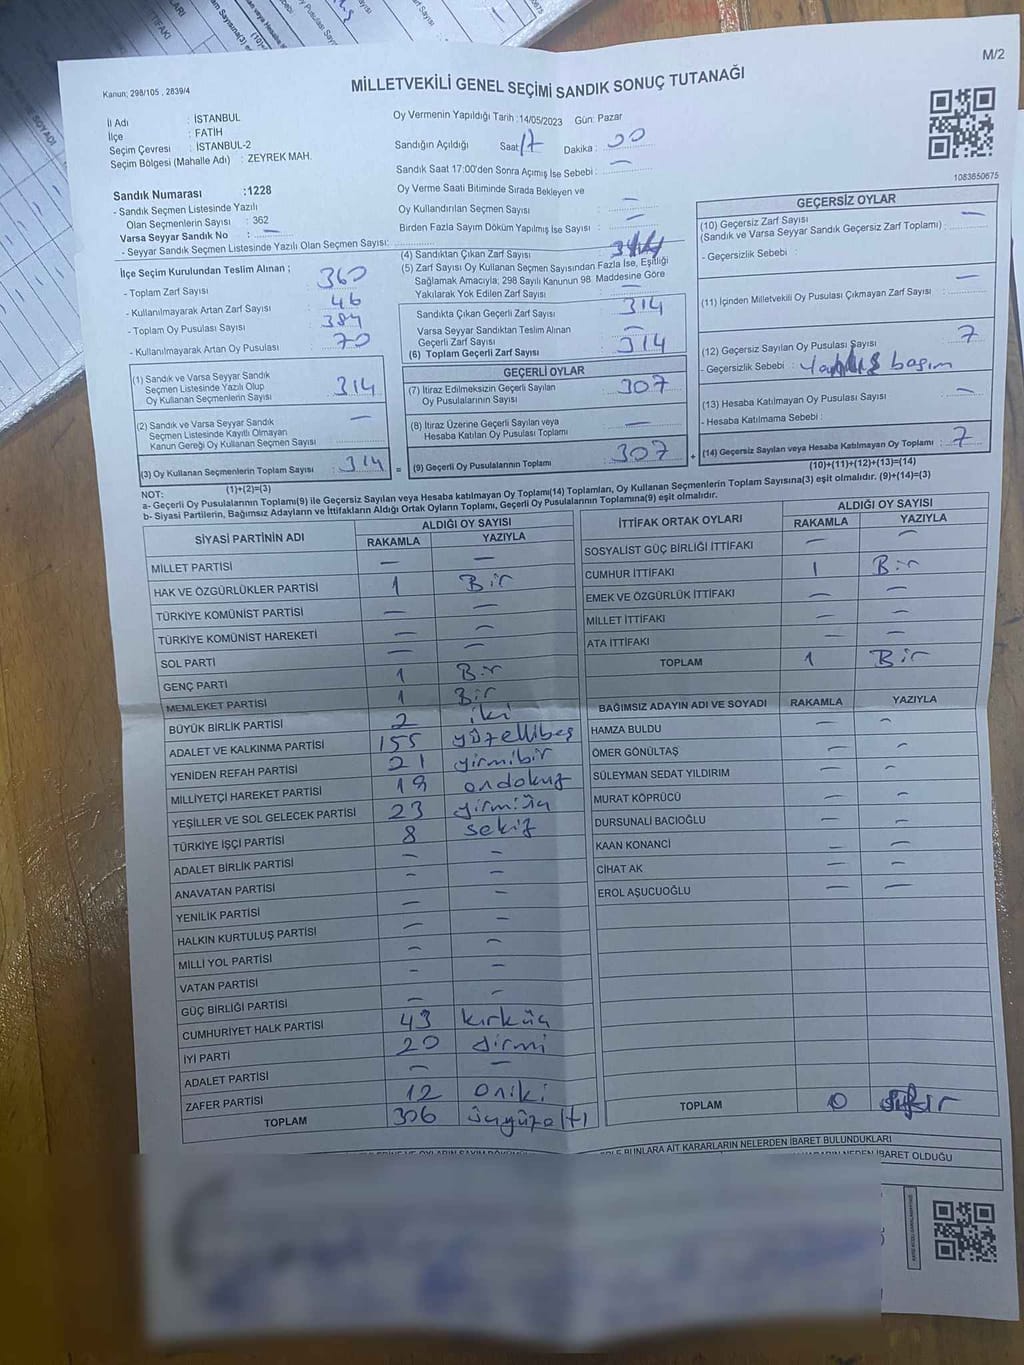 M/2
Kanun; 298/105 , 2839/4
MİLLETVEKİLİ GENEL SEÇİMİ SANDIK SONUÇ TUTANAĞI
İl Adı : İSTANBUL
İlçe : FATİH
Seçim Çevresi : İSTANBUL-2
Seçim Bölgesi (Mahalle Adı) : ZEYREK MAH.
Sandık Numarası :1228
- Sandık Seçmen Listesinde Yazılı
Olan Seçmenlerin Sayısı : 362
Varsa Seyyar Sandık No : —
- Seyyar Sandık Seçmen Listesinde Yazılı Olan Seçmen Sayısı:
Oy Vermenin Yapıldığı Tarih :14/05/2023 Gün: Pazar
Sandığın Açıldığı Saat 17 Dakika : 00
Sandık Saat 17:00'den Sonra Açımış İse Sebebi : —
Oy Verme Saati Bitiminde Sırada Bekleyen ve
Oy Kullandırılan Seçmen Sayısı : —
Birden Fazla Sayım Döküm Yapılmış İse Sayısı : —
1083650675
İlçe Seçim Kurulundan Teslim Alınan ;
- Toplam Zarf Sayısı : 360
- Kullanılmayarak Artan Zarf Sayısı : 46
- Toplam Oy Pusulası Sayısı : 384
- Kullanılmayarak Artan Oy Pusulası : 70
(1) Sandık ve Varsa Seyyar Sandık
Seçmen Listesinde Yazılı Olup
Oy Kullanan Seçmenlerin Sayısı : 314
(2) Sandık ve Varsa Seyyar Sandık
Seçmen Listesinde Kayıtlı Olmayan
Kanun Gereği Oy Kullanan Seçmen Sayısı : —
(3) Oy Kullanan Seçmenlerin Toplam Sayısı : 314
(1)+(2)=(3)
(4) Sandıktan Çıkan Zarf Sayısı :
(5) Zarf Sayısı Oy Kullanan Seçmen Sayısından Fazla İse, Eşitliği
Sağlamak Amacıyla; 298 Sayılı Kanunun 98. Maddesine Göre
Yakılarak Yok Edilen Zarf Sayısı : —
Sandıkta Çıkan Geçerli Zarf Sayısı : 314
Varsa Seyyar Sandıktan Teslim Alınan
Geçerli Zarf Sayısı : —
(6) Toplam Geçerli Zarf Sayısı : 314
GEÇERLİ OYLAR
(7) İtiraz Edilmeksizin Geçerli Sayılan
Oy Pusulalarının Sayısı : 307
(8) İtiraz Üzerine Geçerli Sayılan veya
Hesaba Katılan Oy Pusulası Toplamı : —
= (9) Geçerli Oy Pusulalarının Toplamı : 307 +
GEÇERSİZ OYLAR
(10) Geçersiz Zarf Sayısı
(Sandık ve Varsa Seyyar Sandık Geçersiz Zarf Toplamı) : —
- Geçersizlik Sebebi :
(11) İçinden Milletvekili Oy Pusulası Çıkmayan Zarf Sayısı : —
(12) Geçersiz Sayılan Oy Pusulası Sayısı : 7
- Geçersizlik Sebebi : Yanlış basım
(13) Hesaba Katılmayan Oy Pusulası Sayısı : —
- Hesaba Katılmama Sebebi :
(14) Geçersiz Sayılan veya Hesaba Katılmayan Oy Toplamı : 7
(10)+(11)+(12)+(13)=(14)
NOT:
a- Geçerli Oy Pusulalarının Toplamı(9) ile Geçersiz Sayılan veya Hesaba katılmayan Oy Toplamı(14) Toplamları, Oy Kullanan Seçmenlerin Toplam Sayısına(3) eşit olmalıdır. (9)+(14)=(3)
b- Siyasi Partilerin, Bağımsız Adayların ve İttifakların Aldığı Ortak Oyların Toplamı, Geçerli Oy Pusulalarının Toplamına(9) eşit olmalıdır.
SİYASİ PARTİNİN ADI ALDIĞI OY SAYISI
RAKAMLA YAZIYLA
MİLLET PARTİSİ — —
HAK VE ÖZGÜRLÜKLER PARTİSİ 1 Bir
TÜRKİYE KOMÜNİST PARTİSİ — —
TÜRKİYE KOMÜNİST HAREKETİ — —
SOL PARTİ — —
GENÇ PARTİ 1 Bir
MEMLEKET PARTİSİ 1 Bir
BÜYÜK BİRLİK PARTİSİ 2 iki
ADALET VE KALKINMA PARTİSİ 155 yüzellibeş
YENİDEN REFAH PARTİSİ 21 yirmibir
MİLLİYETÇİ HAREKET PARTİSİ 19 ondokuz
YEŞİLLER VE SOL GELECEK PARTİSİ 23 yirmiüç
TÜRKİYE İŞÇİ PARTİSİ 8 sekiz
ADALET BİRLİK PARTİSİ — —
ANAVATAN PARTİSİ — —
YENİLİK PARTİSİ — —
HALKIN KURTULUŞ PARTİSİ — —
MİLLİ YOL PARTİSİ — —
VATAN PARTİSİ — —
GÜÇ BİRLİĞİ PARTİSİ — —
CUMHURİYET HALK PARTİSİ 43 kırküç
İYİ PARTİ 20 yirmi
ADALET PARTİSİ — —
ZAFER PARTİSİ 12 oniki
TOPLAM 306 üçyüzaltı
İTTİFAK ORTAK OYLARI ALDIĞI OY SAYISI
RAKAMLA YAZIYLA
SOSYALİST GÜÇ BİRLİĞİ İTTİFAKI — —
CUMHUR İTTİFAKI 1 Bir
EMEK VE ÖZGÜRLÜK İTTİFAKI — —
MİLLET İTTİFAKI — —
ATA İTTİFAKI — —
TOPLAM 1 Bir
BAĞIMSIZ ADAYIN ADI VE SOYADI RAKAMLA YAZIYLA
HAMZA BULDU — —
ÖMER GÖNÜLTAŞ — —
SÜLEYMAN SEDAT YILDIRIM — —
MURAT KÖPRÜCÜ — —
DURSUNALİ BACIOĞLU — —
KAAN KONANCİ — —
CİHAT AK — —
EROL AŞUCUOĞLU — —
TOPLAM 0 sıfır
BUNLARA AİT KARARLARIN NELERDEN İBARET BULUNDUKLARI
NEDEN İBARET OLDUĞU